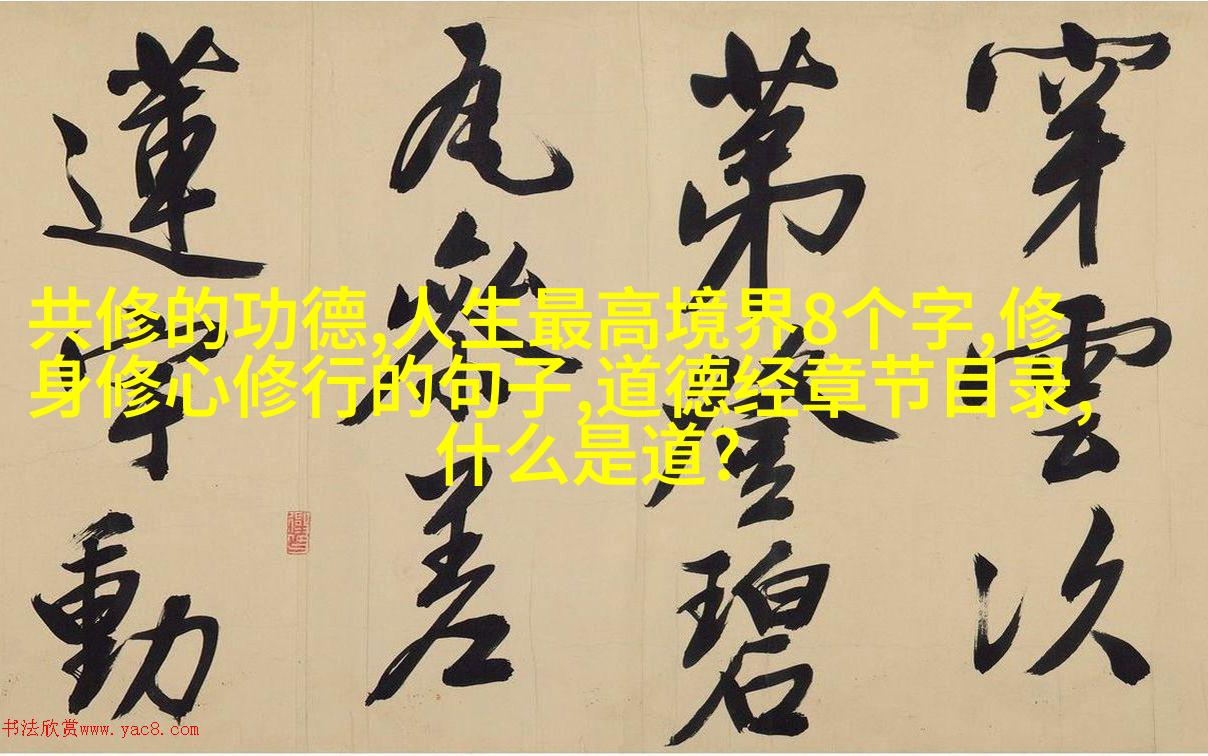 穿雲次
第燈碧
瓦參差
蓮宇動
共修的功德,人生最高境界8个字,修
身修心修行的句子,道德经章节目录,
什么是道?
书法欣赏www.yac8.com